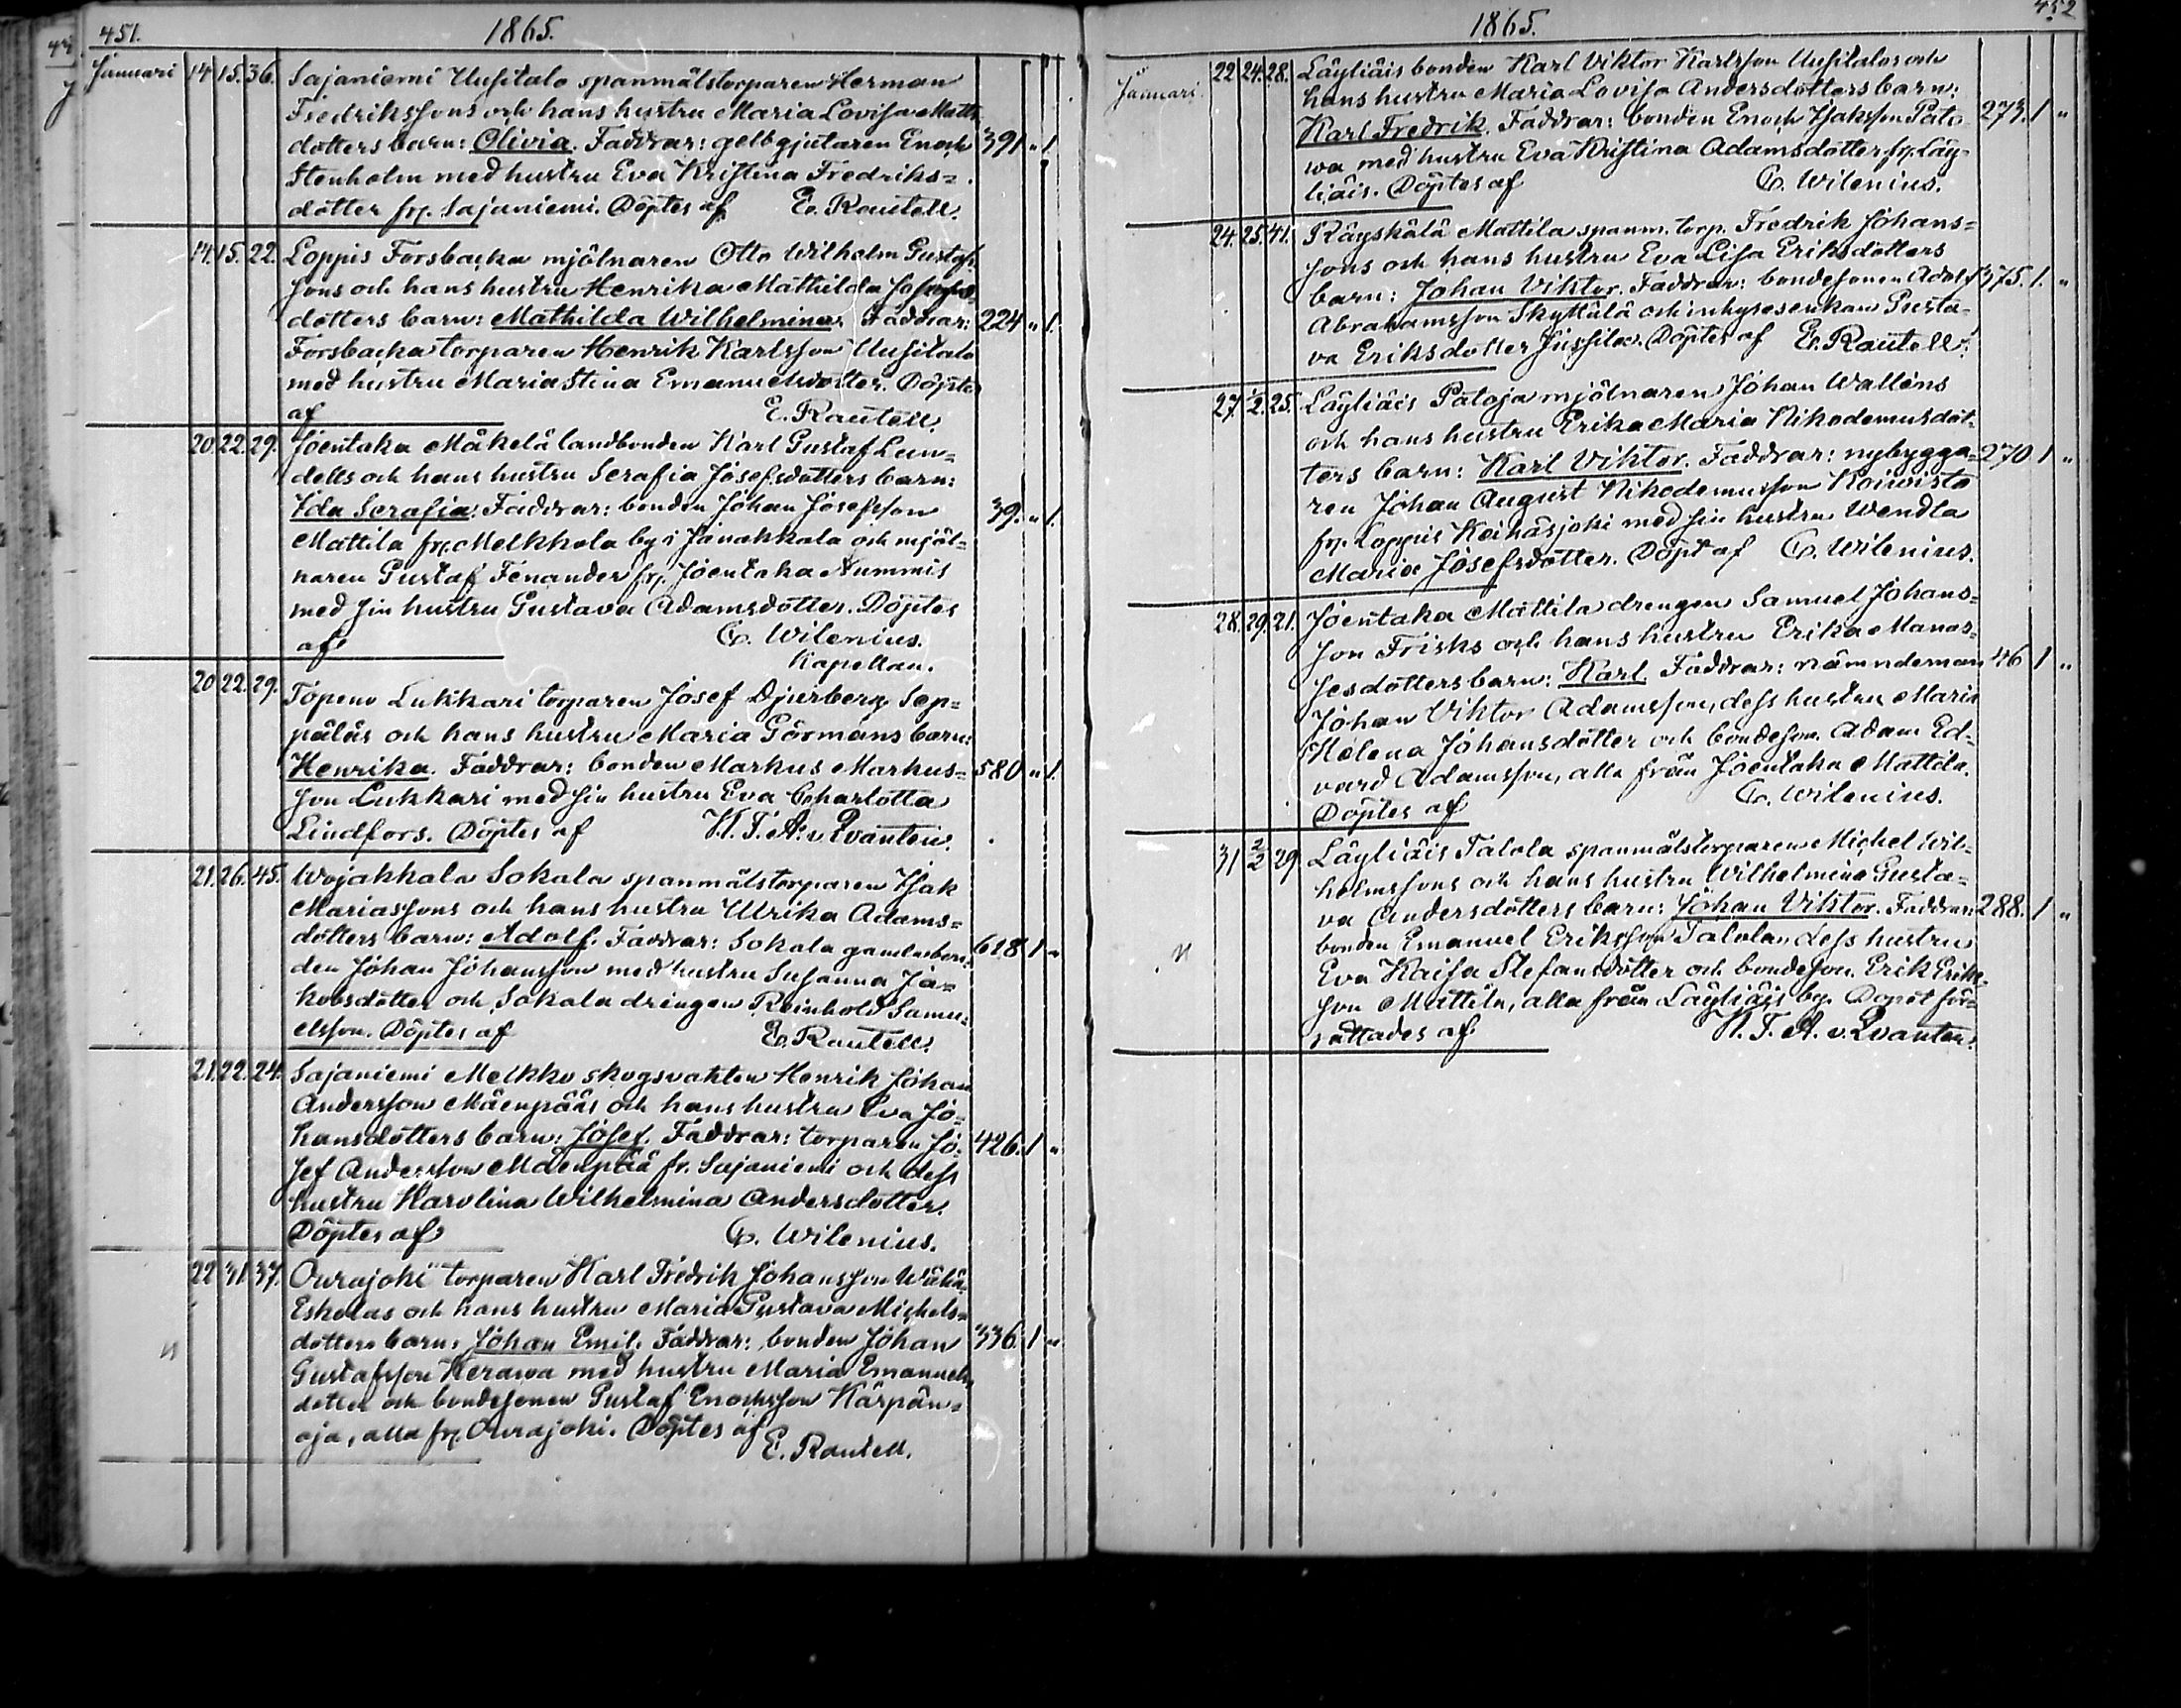 451. 1865.
Januari 14. 15. 36. Sajaniemi Uusitalo spanmålstorparen Herman
Fredrikssons och hans hustru Maria Lovisa Matts
dotters barn: Olivia. Faddrar: gelbgjutaren Enoch 391 " 1.
Stenholm med hustru Eva Kristina Fredriks=
dotter frn Sajaniemi. Döptes af E. Rautell.
14. 15. 22. Loppis Forsbacka mjölnaren Otto Wilhelm Gustaf
sons och hans hustru Henrika Mathilda Josefs
dotters barn: Mathilda Wilhelmina. Faddrar: 224 " 1.
Forsbacka torparen Henrik Karlsson Uusitalo
med hustru Maria Stina Emanuelsdotter. Döptes
af E. Rautell.
20. 22. 29. Joentaka Mäkelä landbonden Karl Gustaf Lun=
dells och hans hustru Serafia Josefsdotters barn:
Ida Serafia. Faddrar: bonden Johan Josefsson 39. " 1.
Mattila frn Melkkola by i Janakkala och mjöl=
naren Gustaf Fenander frn Joentaka Nummis
med sin hustru Gustava Adamsdotter. Döptes
af C. Wilenius.
Kapellan.
20 22. 29. Topeno Lukkari torparen Josef Djurberg Sep=
päläs och hans hustru Maria Görmans barn:
Henrika. Faddrar: bonden Markus Markus= 580 " 1.
son Lukkari med sin hustru Eva Charlotta
Lindfors. Döptes af K. T. A. v. Qvanten.
21. 26. 45. Wojakkala Sokala spanmålstorparen Isak
Mariassons och hans hustru Ulrika Adams=
dotters barn: Adolf. Faddrar: Sokala gamlabon= 618 1 "
den Johan Johansson med hustru Susanna Ja=
kobsdotter och Sokala drengen Reinhold Samu=
elsson. Döptes af E. Rautell.
21. 22. 24. Sajaniemi Melkko skogsvakten Henrik Johan
Andersson Mäenpääs och hans hustru Eva Jo=
hansdotters barn: Josef. Faddrar: torparen Jo= 426. 1 "
sef Andersson Mäenpää fr. Sajaniemi och dess
hustru Karolina Wilhelmina Andersdotter.
Döptes af C. Wilenius.
22 31. 37. Ourajoki torparen Karl Fredrik Johansson Wähä
Eskolas och hans hustru Maria Gustava Michels=
dotters barn: Johan Emil. Faddrar: bonden Johan 336. 1 "
Gustafsson Kerawa med hustru Maria Emanuels
dotter och bondesonen Gustaf Enochsson Kärpän=
oja, alla frn Ourajoki. Döptes af
E. Rautell.
1865. 452
Januari. 22 24. 28. Läyliäis bonden Karl Viktor Karlsson Uusitalos och
hans hustru Maria Lovisa Andersdotters barn:
Karl Fredrik. Faddrar: bonden Enoch Isaksson Pato= 273. 1 "
wa med hustru Eva Kristina Adamsdotter frn Läy=
liäis. Döptes af C. Wilenius.
24. 25. 41. Räyskälä Mattila spanm. torp. Fredrik Johans=
sons och hans hustru Eva Lisa Eriksdotters
barn: Johan Viktor. Faddrar: bondesonen Adolf 375. 1. "
Abrahamsson Skyttälä och inhysesenkan Gusta=
va Eriksdotter Jussila. Döptes af E. Rautell.
27. 1/2. 25. Läyliäis Pätoja mjölnaren Johan Walléns
och hans hustru Erika Maria Nikodemusdot=
ters barn: Karl Viktor. Faddrar: nybygga= 270 1 "
ren Johan August Nikodemusson Koiwisto
frn Loppis Keihäsjoki med sin hustru Wendla
Maria Josefsdotter. Döpt af C. Wilenius.
28. 29. 21. Joentaka Mattila drengen Samuel Johans=
son Frisks och hans hustru Erika Manas=
sesdotters barn: Karl. Faddrar: nämndeman 46 1 "
Johan Viktor Adamsson, dess hustru Maria
Helena Johansdotter och bondeson. Adam Ed=
vard Adamsson, alla från Joentaka Mattila.
Döptes af C. Wilenius.
31 2/2 29. Läyliäis Talola spanmålstorparen Michel Wil=
helmssons och hans hustru Wilhelmina Gusta=
va Andersdotters barn: Johan Viktor. Faddrar: 288. 1 "
bonden Emanuel Eriksson Talola, dess hustru
Eva Kaisa Stefansdotter och bondeson. Erik Eriks=
son Mattila, alla från Läyliäis by. Dopet för=
rättades af K. T. A. v. Qvanten.